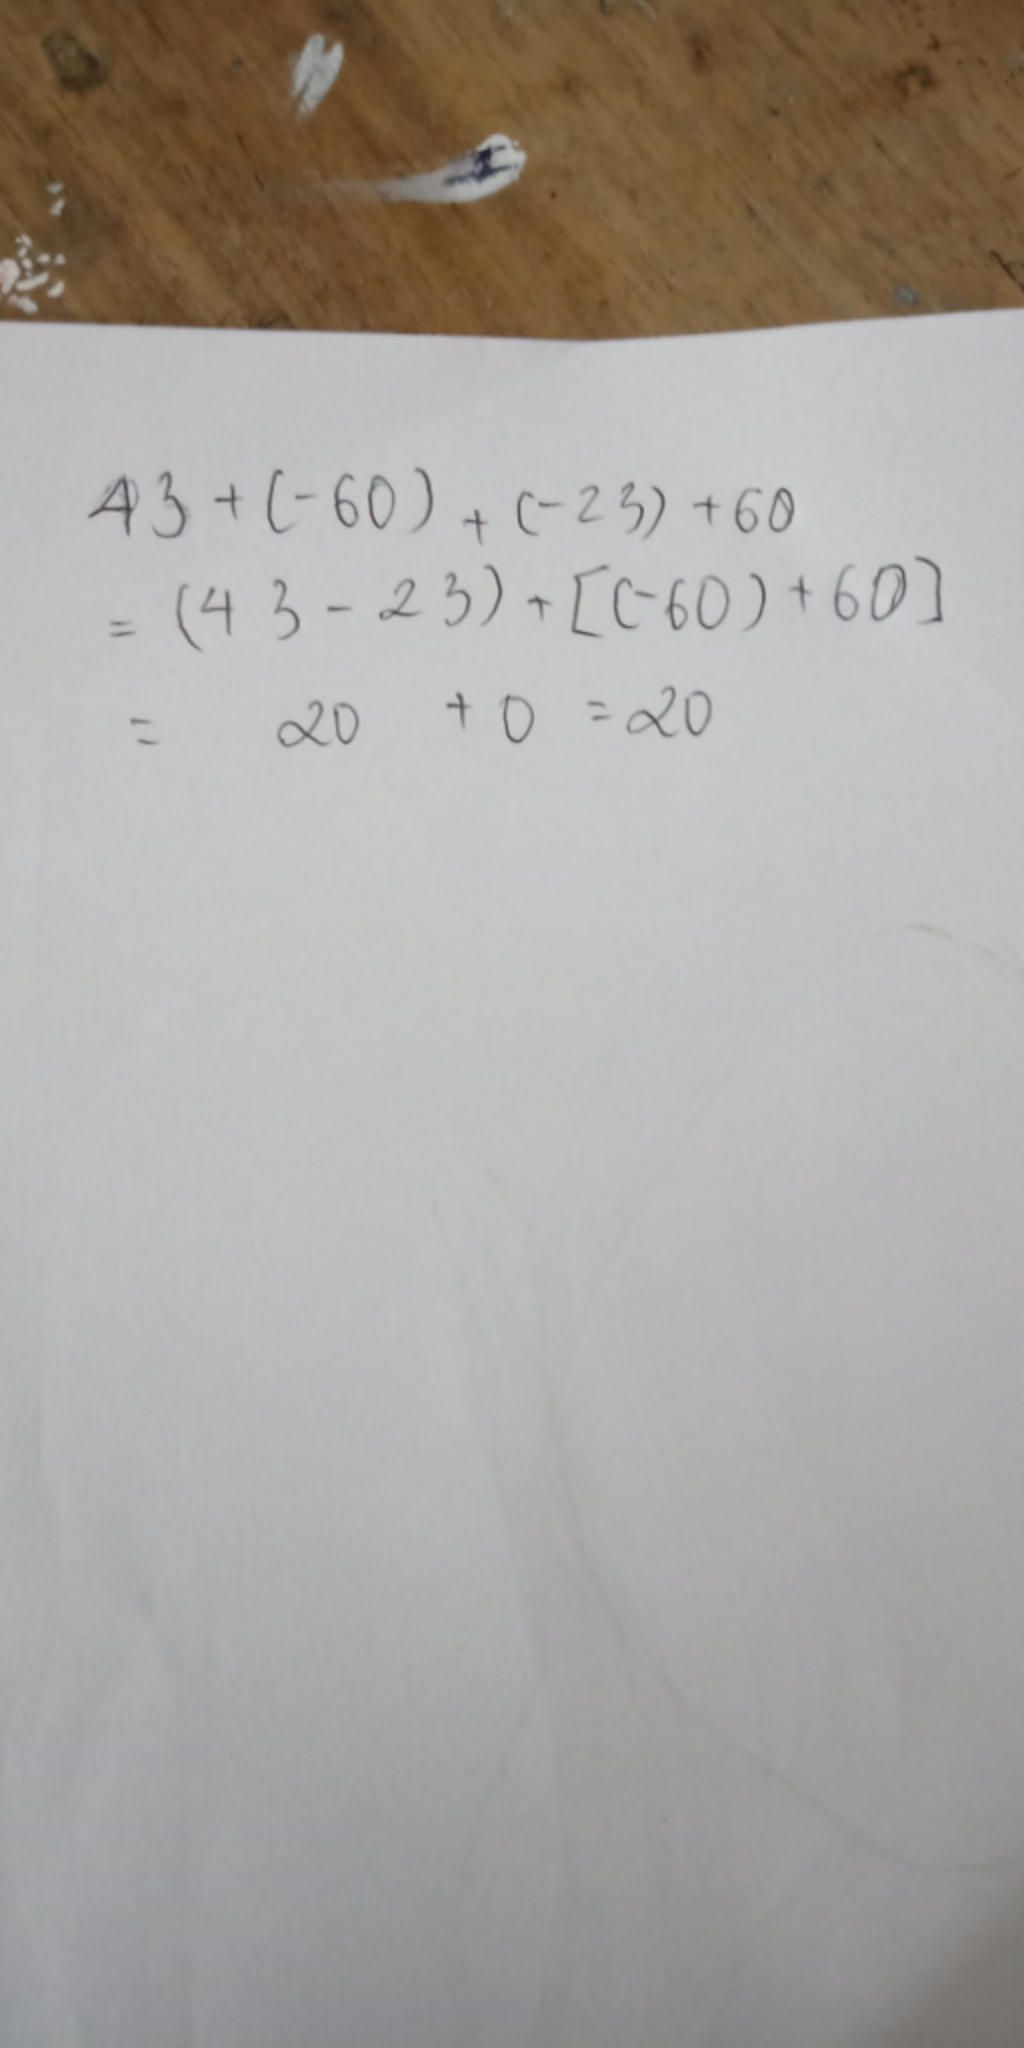 43 + (-60) + (-23) + 60
= (43 - 23) + [(-60) + 60]
= 20 + 0 = 20